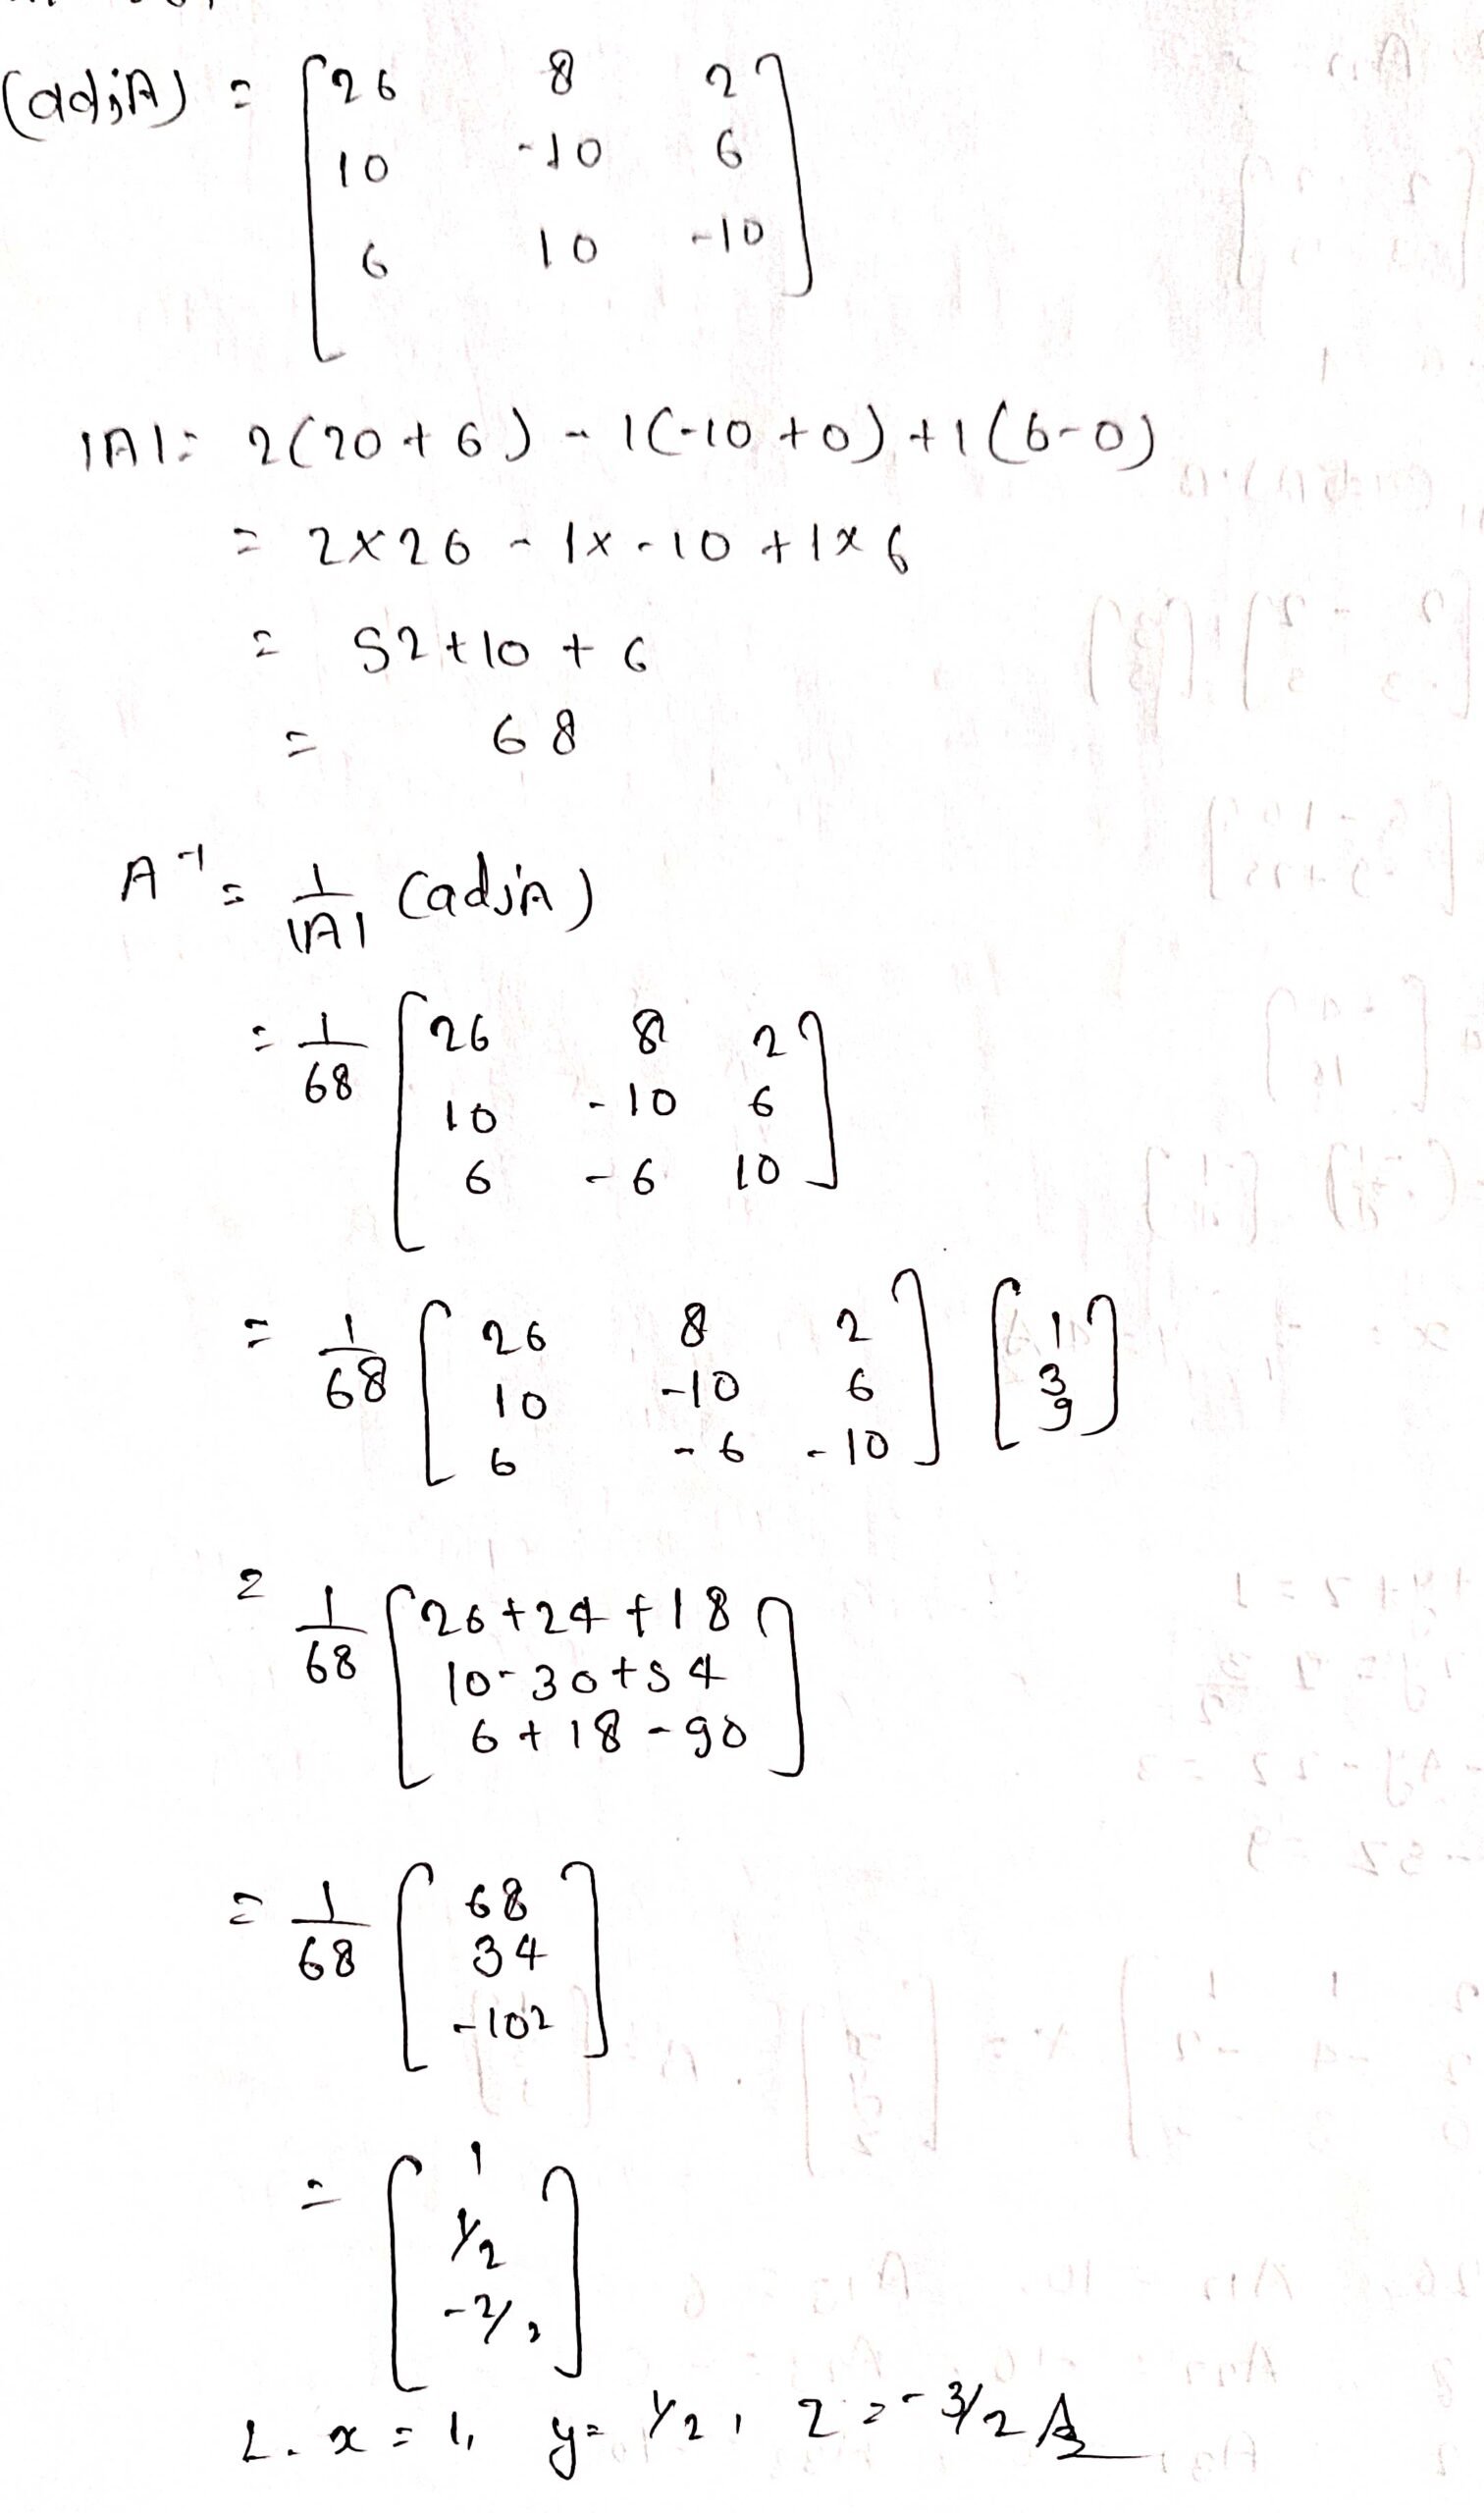 (adjA) = [26 8 2
10 -10 6
6 10 -10]
|A| = 2(20+6) - 1(-10+0) + 1(6-0)
= 2×26 - 1×-10 + 1×6
= 52+10+6
= 68
A⁻¹ = 1/|A| (adjA)
= 1/68 [26 8 2
10 -10 6
6 -6 10]
= 1/68 [26 8 2
10 -10 6
6 -6 -10] [1
3
9]
= 1/68 [26+24+18
10-30+54
6+18-90]
= 1/68 [68
34
-102]
= [1
1/2
x = 1, y = 1/2, z = -3/2